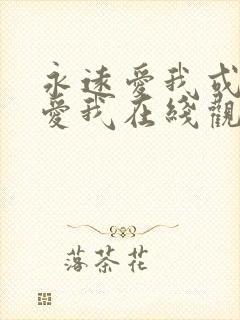 永遠愛我或
愛我在綫觀
落茶花